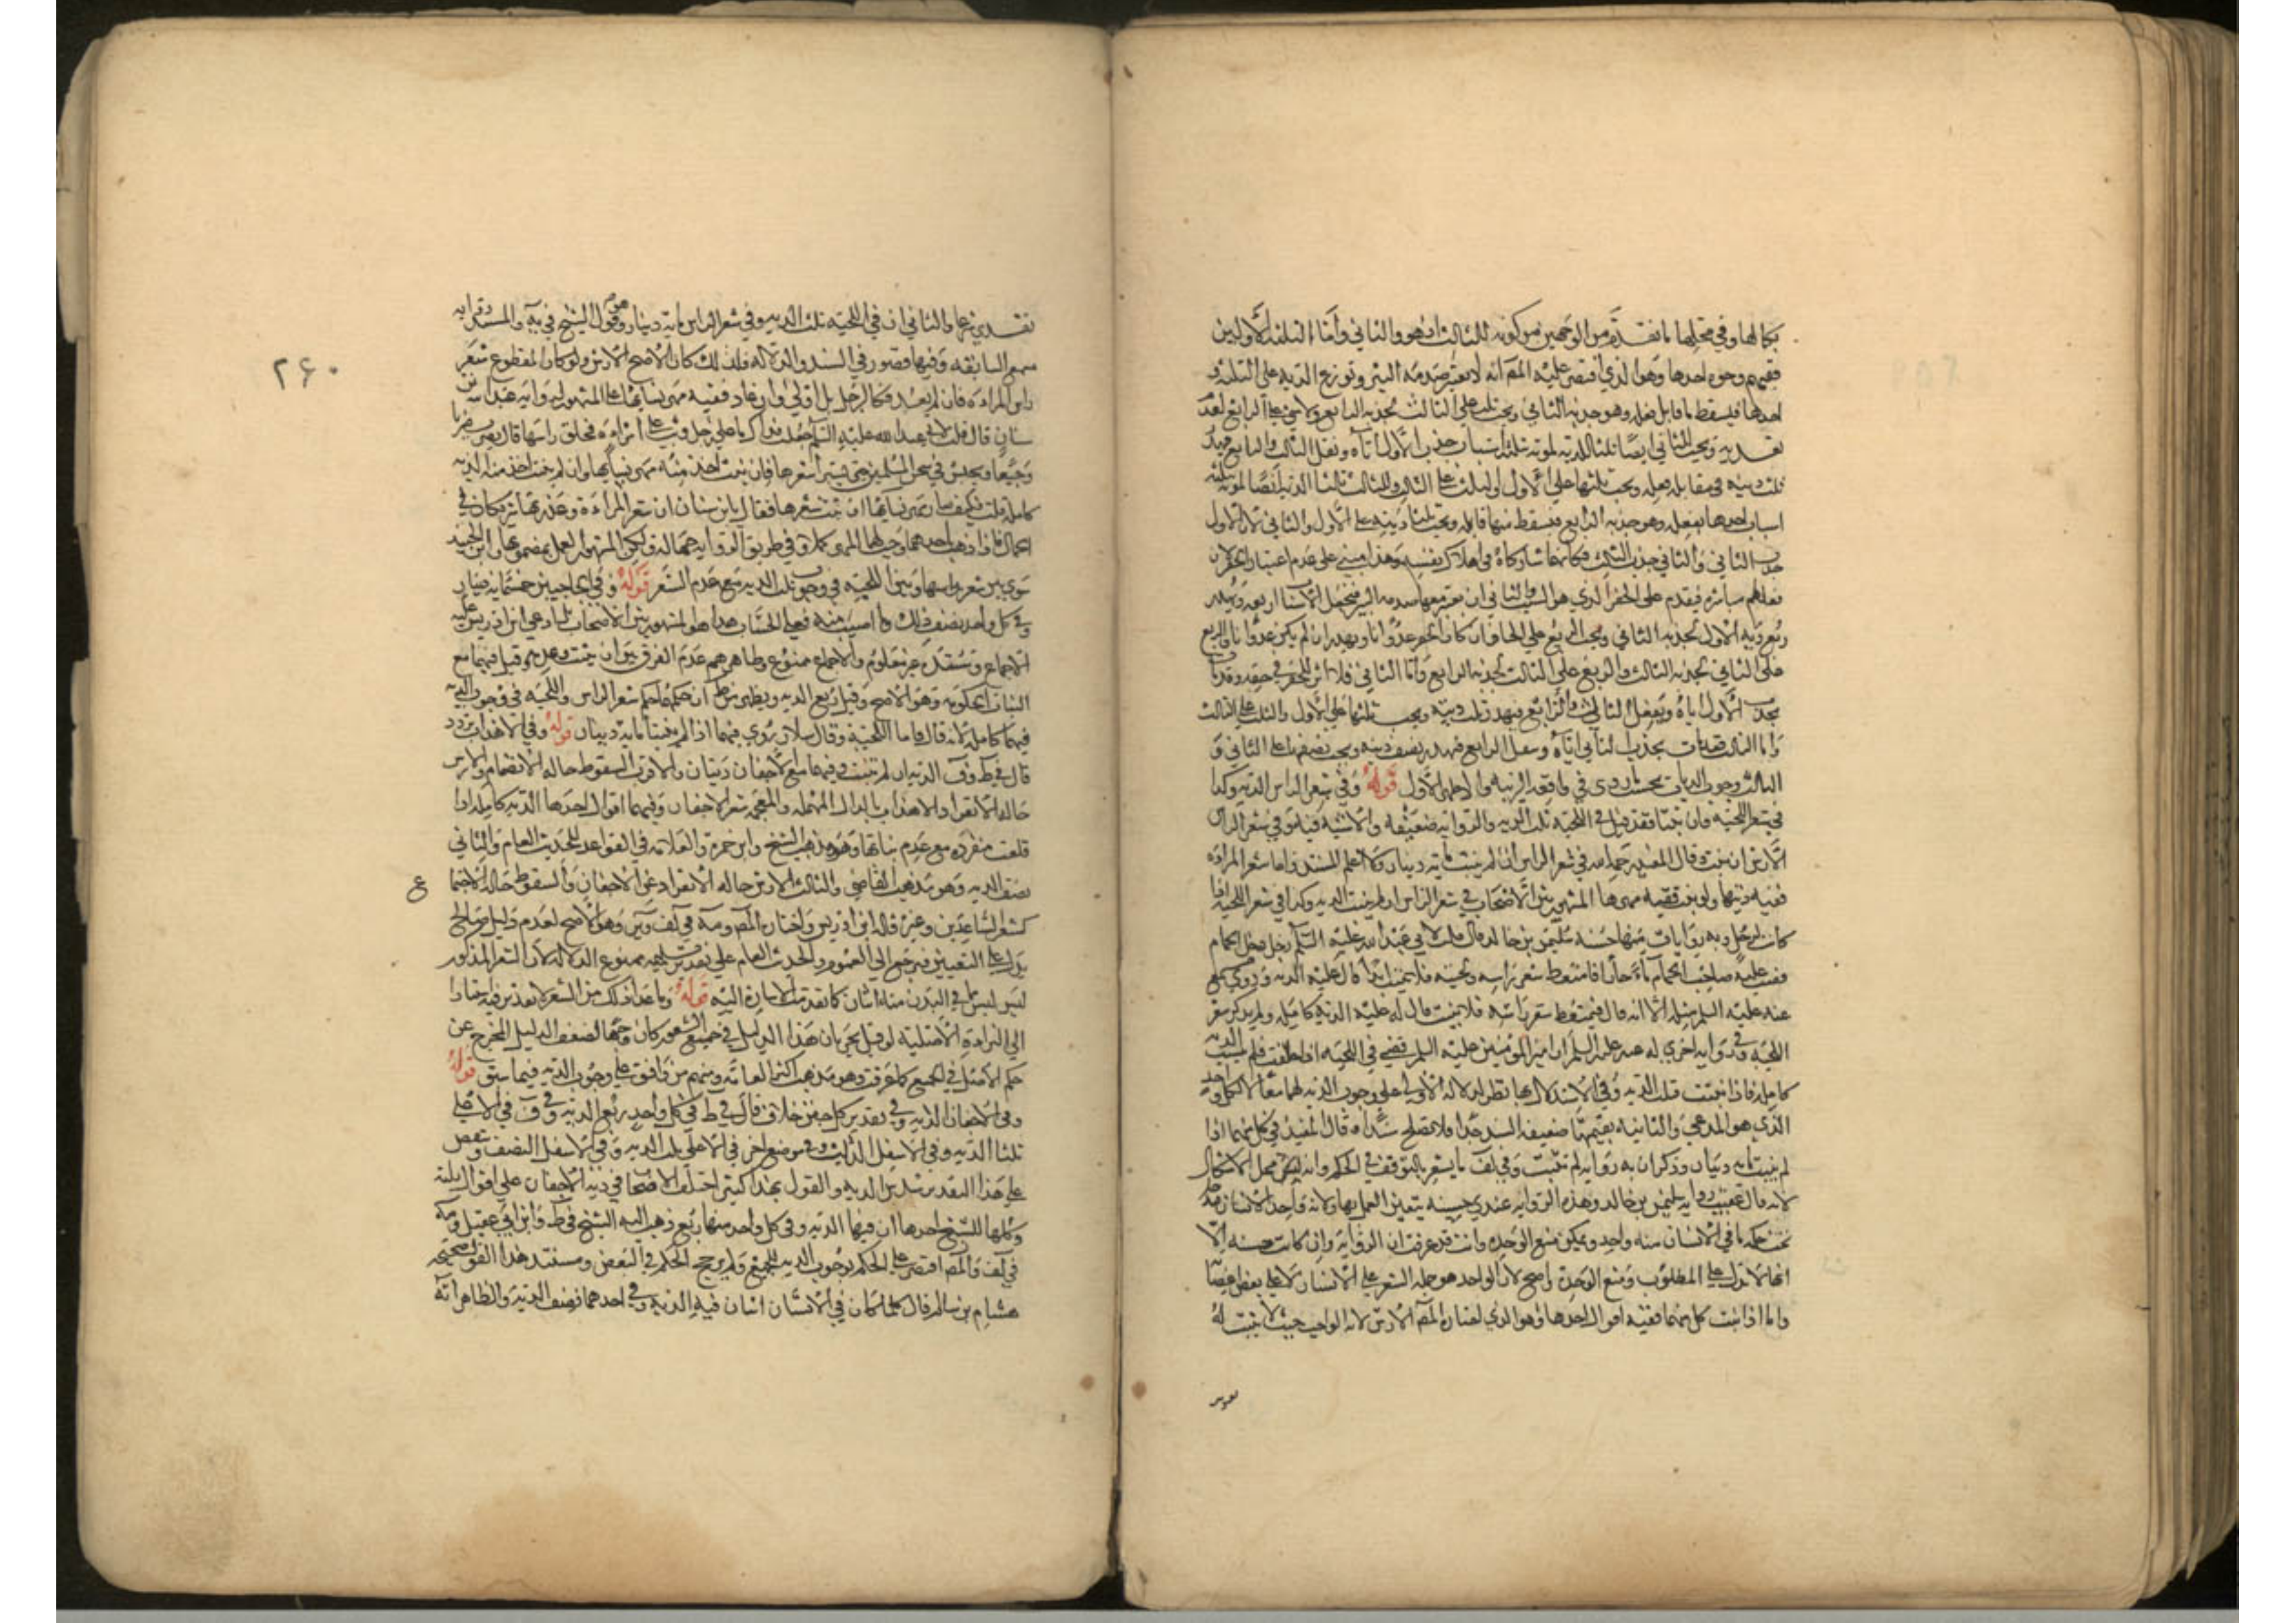 بكمالها وفي محلها ما تقدم من الوجهين من كونه للثالث او هو والثاني وأما الثلثة الأولين
ففيهم وجوه احدها وهو الذي اقتصر عليه المصـ انه لا يعتبر صدمه البئر وتوزع الدية على الثلثة و
احدها فيسقط ما قابل فعله وهو جذبه الثاني ويجب ثلث على الثالث بجذبه الرابع ولا شيء على الرابع لعدم
تعديه ويجب الثاني ايضا ثلثا الدية لموته بثلثة اسباب جذب الأول اياه وثقل الثالث والرابع فيهدر
ثلث ديته في مقابله فعله ويجب ثلثها على الأول والثلث على الثالث وللثالث ثلثا الدية ايضا لموته بثلثة
اسباب احدها بفعله وهو جذبه الرابع فيسقط منها قابله ويجب ثلثا ديته على الأول والثاني لان الأول
جذب الثاني والثاني جذب الثالث فكانهما شاركاه في اهلاك نفسه وهذا مبني على عدم اعتبار الحفر لان
فعلهم مباشرة فيقدم على الحفر الذي هو السبب والثاني ان يعتبر معها صدمه البئر فتجعل الاسباب اربعه ويهدر
ربع دية الأول بجذبه الثاني ويجب الربع على الحافر ان كان الحفر عدوانا ويهدر ان لم يكن عدوانا والربع
على الثاني بجذبه الثالث والربع على الثالث بجذبه الرابع وأما الثاني فلا اثر للحفر في حقه وقد مات
بجذب الأول اياه وبفعل الثالث والرابع فيهدر ثلث ديته ويجب ثلثها على الأول والثلث على الثالث
وأما الثالث فقد مات بجذب الثاني اياه وبفعل الرابع فيهدر نصف ديته ويجب نصفها على الثاني و
الثالث وجوب الديات بحسب ما روى في واقعه الزبيه والاجلى الأول قوله وفي شعر الراس الدية وكذا
في شعر اللحية فان نبتا فقد قيل في اللحية ثلث الدية والرواية ضعيفة والأشبه فيه وفي شعر الراس
الأرش ان نبت وقال المفيد رحمه الله في شعر الراس ان لم ينبت مائة دينار ولا اعلم المستند واما شعر المراة
ففيه ديتها ولو نبت ففيه مهرها المشهور بين الأصحاب في شعر الراس ان لم ينبت الدية وكذا في شعر اللحية اذا
كانت لرجل وبه روايات منها حسنة سليمن بن خالد قال قلت لابي عبد الله عليه السلم رجل دخل الحمام
فصب عليه صاحب الحمام ماء حارا فامتعط شعر راسه ولحيته فلا ينبت ابدا قال عليه الدية وروي
عنه عليه السلم مثله الا انه قال فيمتعط شعر راسه فلا ينبت قال له عليه الدية كاملة ولم يذكر شعر
اللحية وفي رواية اخرى له عنه عليه السلم ان امير المؤمنين عليه السلم قضى في اللحية اذا حلقت فلم تنبت الدية
كاملة فاذا نبتت فثلث الدية وفي الاستدلال بها نظر لدلالة الأولى على وجوب الدية لهما معا لا لكل واحد
الذي هو المدعي والثانية بقيتهما ضعيفه السند جدا فلا يصلح شاهدا وقال المفيد في كل منهما اذا
لم ينبت مائة دينار وذكر ان به رواية لم تثبت وفي لف ما يشعر بالتوقف في الحكم وانه محل الاشكال
لانه قال عقيب رواية سليمن بن خالد وهذه الرواية عندي حسنه يتعين العمل بها ولانه واحد في الانسان فدخل
تحت حكم ما في الانسان منه واحد ويمكن منع الوحدة وانت قد عرفت ان الرواية وان كانت حسنه الا
انها لا تدل على المطلوب ومنع الوحدة واضح لان الواحد هو جمله الشعر على الانسان لا على بعض اعضائه
واما اذا نبت كل منهما ففيه اقوال احدها وهو الذي اختاره المصـ الأرش لانه الواجب حيث لا يثبت له
تقدير
٢٦٠
تقدير شرعا والثاني ان في اللحية ثلث الدية وفي شعر الراس مائة دينار وهو قول الشيخ في يه والمستند رواية
مسمع السابقه وفيها قصور في السند والدلالة فلذلك كان الأصح الأرش ولو كان المقطوع شعر
راس المراءة فان لم يعد فكالرجل بل اولى وان عاد ففيه مهر نسائها على المشهور لرواية عبد الله بن
سنان قال قلت لابي عبد الله عليه السلم جعلت فداك ما على رجل وثب على امراءة فحلق راسها قال يضرب ضربا
وجيعا ويحبس في سجن المسلمين حتى يستبرأ شعرها فان نبت اخذ منه مهر نسائها وان لم ينبت اخذ منه الدية
كاملة قلت فكيف صار مهر نسائها ان نبت شعرها فقال يا بن سنان ان شعر المراءة وعذرتها شريكان في
الجمال فاذا ذهب احدهما وجب لها المهر كملا وفي طريق الرواية جهالة ولكن المشهور العمل بمضمونها وابن الجنيد
سوى بين شعر راسها وبين اللحية في وجوب ثلث الدية مع عدم الشعر قوله وفي الحاجبين خمسمائة دينار
وفي كل واحد نصف ذلك وما اصيب منه فعلى الحساب هذا هو المشهور بين الأصحاب بل ادعى ابن ادريس عليه
الاجماع ومستنده غير معلوم والاجماع ممنوع وظاهرهم عدم الفرق بين ان ينبت وعدمه وقيل فيهما مع
النبات الحكومة وهو الاصح وقيل ربع الدية ويظهر من ط ان حكمهما حكم شعر الراس واللحية في وجوب الدية
فيهما كاملة لانه قال فاما اللحية وقال سلار روي فيهما اذا لم ينبتا مائة دينار قوله وفي الاهداب تردد
قال في ط وف الدية ان لم تنبت وفيها مع الأجفان ديتان والأقرب السقوط حالة الانضمام والأرش
حالة الانفراد الاهداب بالدال المهملة والمعجمة شعر الأجفان وفيهما اقوال احدها الدية كاملة اذا
قلعت منفردة مع عدم نباتها وهو مذهب الشيخ وابن حمزة والعلامة في القواعد للحديث العام والثاني
نصف الدية وهو مذهب القاضي والثالث الأرش حالة الانفراد عن الأجفان والسقوط حالة الاجتماع
كشعر الساعدين وغيره قاله ابن ادريس واختاره المصـ ومه في لف وير وهو الأصح لعدم دليل صالح
يدل على التعيين فيرجع الى العموم والحديث العام على تقدير تسليمه ممنوع الدلالة لان الشعر المذكور
ليس ليس مما في البدن منه اثنان كما تقدمت الاشارة اليه قوله وما عدا ذلك من الشعر لا تقدير فيه استنادا
الى البراءة الأصلية لو قيل بجريان هذا الدليل في جميع الشعور كان وجها لضعف الدليل المخرج عن
حكم الأصل في الجميع كما عرفت وهو مذهب اكثر العامة ومنهم من وافق على وجوب الدية فيما سبق قوله
وفي الأجفان الدية وفي تقدير كل جفن خلاف قال في ط في كل واحد ربع الدية وفي ف في الأعلى
ثلثا الدية وفي الأسفل الثلث وفي موضع اخر في الأعلى ثلث الدية وفي الأسفل النصف وينقص
على هذا التقدير سدس الدية والقول بهذا كثير اختلف الأصحاب في دية الأجفان على اقوال ثلثة
وكلها للشيخ احدها ان فيها الدية وفي كل واحد منها ربع ذهب اليه الشيخ في ط وابن ابي عقيل ومه
في لف والمصـ اقتصر على الحكم بوجوب الدية للجميع ولم يرجح الحكم في البعض ومستند هذا القول صحيحه
هشام بن سالم قال كلما كان في الانسان اثنان فيه الدية وفي احدهما نصف الدية والظاهر انه